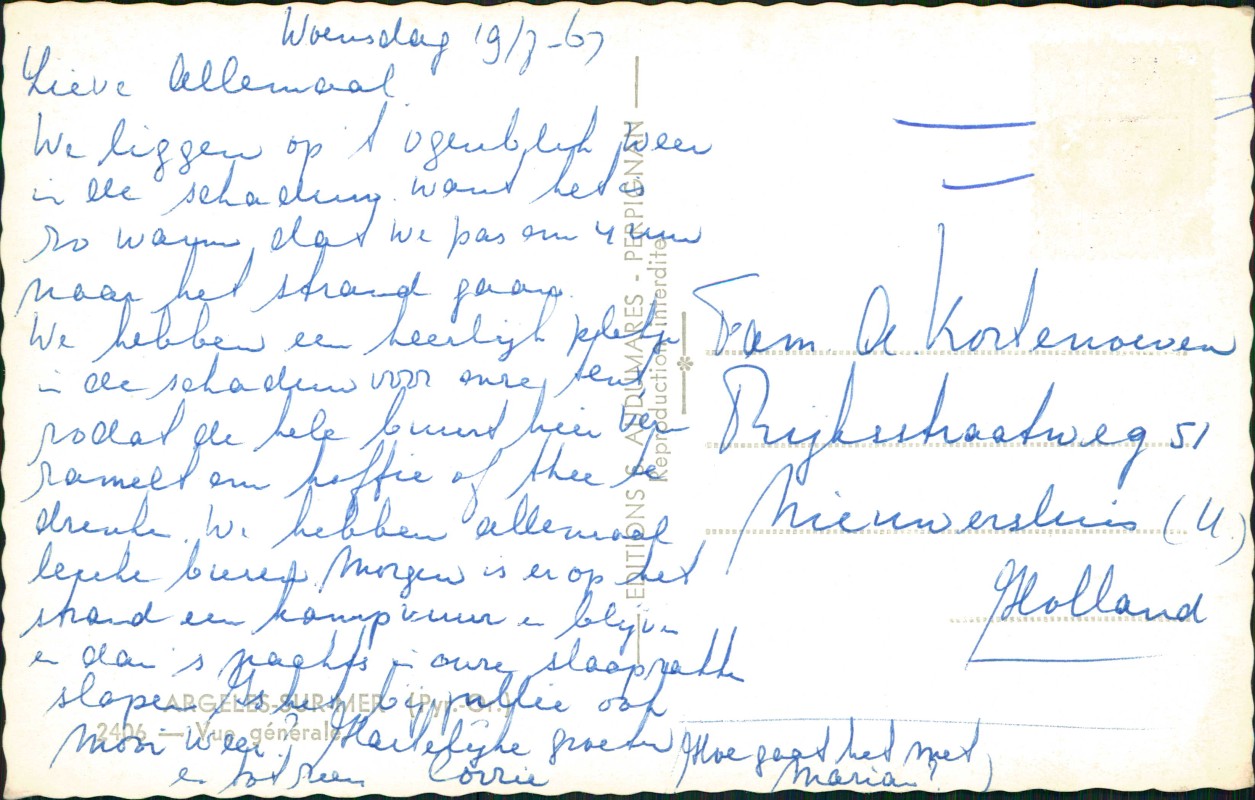 Woensdag 19/7-67
Lieve Allemaal
We liggen op 't ogenblik weer
in de schaduw. want het is
zo warm, dat we pas om 4 uur
naar het strand gaan.
We hebben een heerlijk plekje
in de schaduw voor onze tent
zodat de hele buurt hier ver-
zamelt om koffie of thee te
drinke. We hebben allemaal
leuke buren. Morgen is er op het
strand een kampvuur en blijven
en dan 's nachts in onze slaapzakke
slapen. Is het bij jullie ook
mooi weer? Hartelijke groeten
en tot ziens Corrie
(Hoe gaat het met
Marian?)
Fam. A. Kortenoeven
Rijksstraatweg 51
Nieuwersluis (U.)
Holland
EDITIONS S. AUDUMARES - PERPIGNAN
Reproduction interdite
ARGELES-SUR-MER (Pyr.-Or.)
2406 — Vue générale